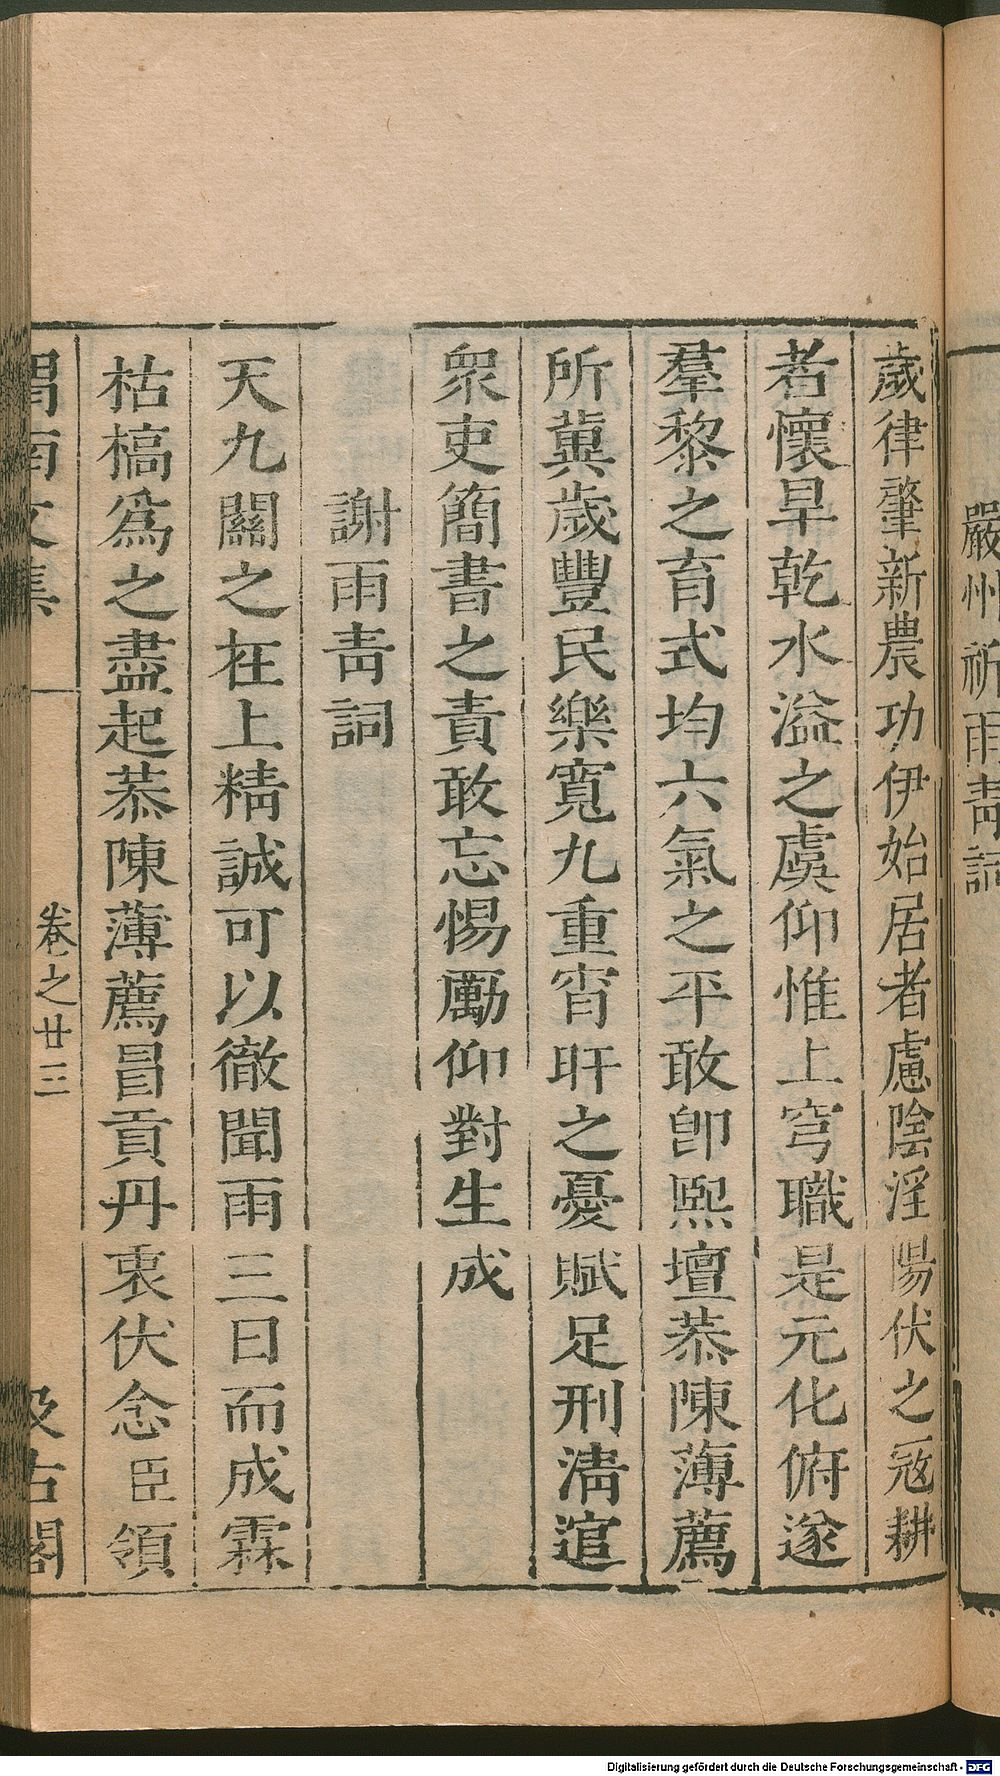 嚴州祈雨青詞
歲律肇新農功伊始居者慮陰淫陽伏之寇耕
者懷旱乾水溢之虞仰惟上穹職是元化俯遂
羣黎之育式均六氣之平敢卽熙壇恭陳薄薦
所冀歲豐民樂寬九重宵旰之憂賦足刑淸逭
衆吏簡書之責敢忘惕厲仰對生成
謝雨靑詞
天九關之在上精誠可以徹聞雨三日而成霖
枯槁爲之盡起恭陳薄薦冒貢丹衷伏念臣領
渭南文集
卷之廿三
汲古閣
Digitalisierung gefördert durch die Deutsche Forschungsgemeinschaft - DFG